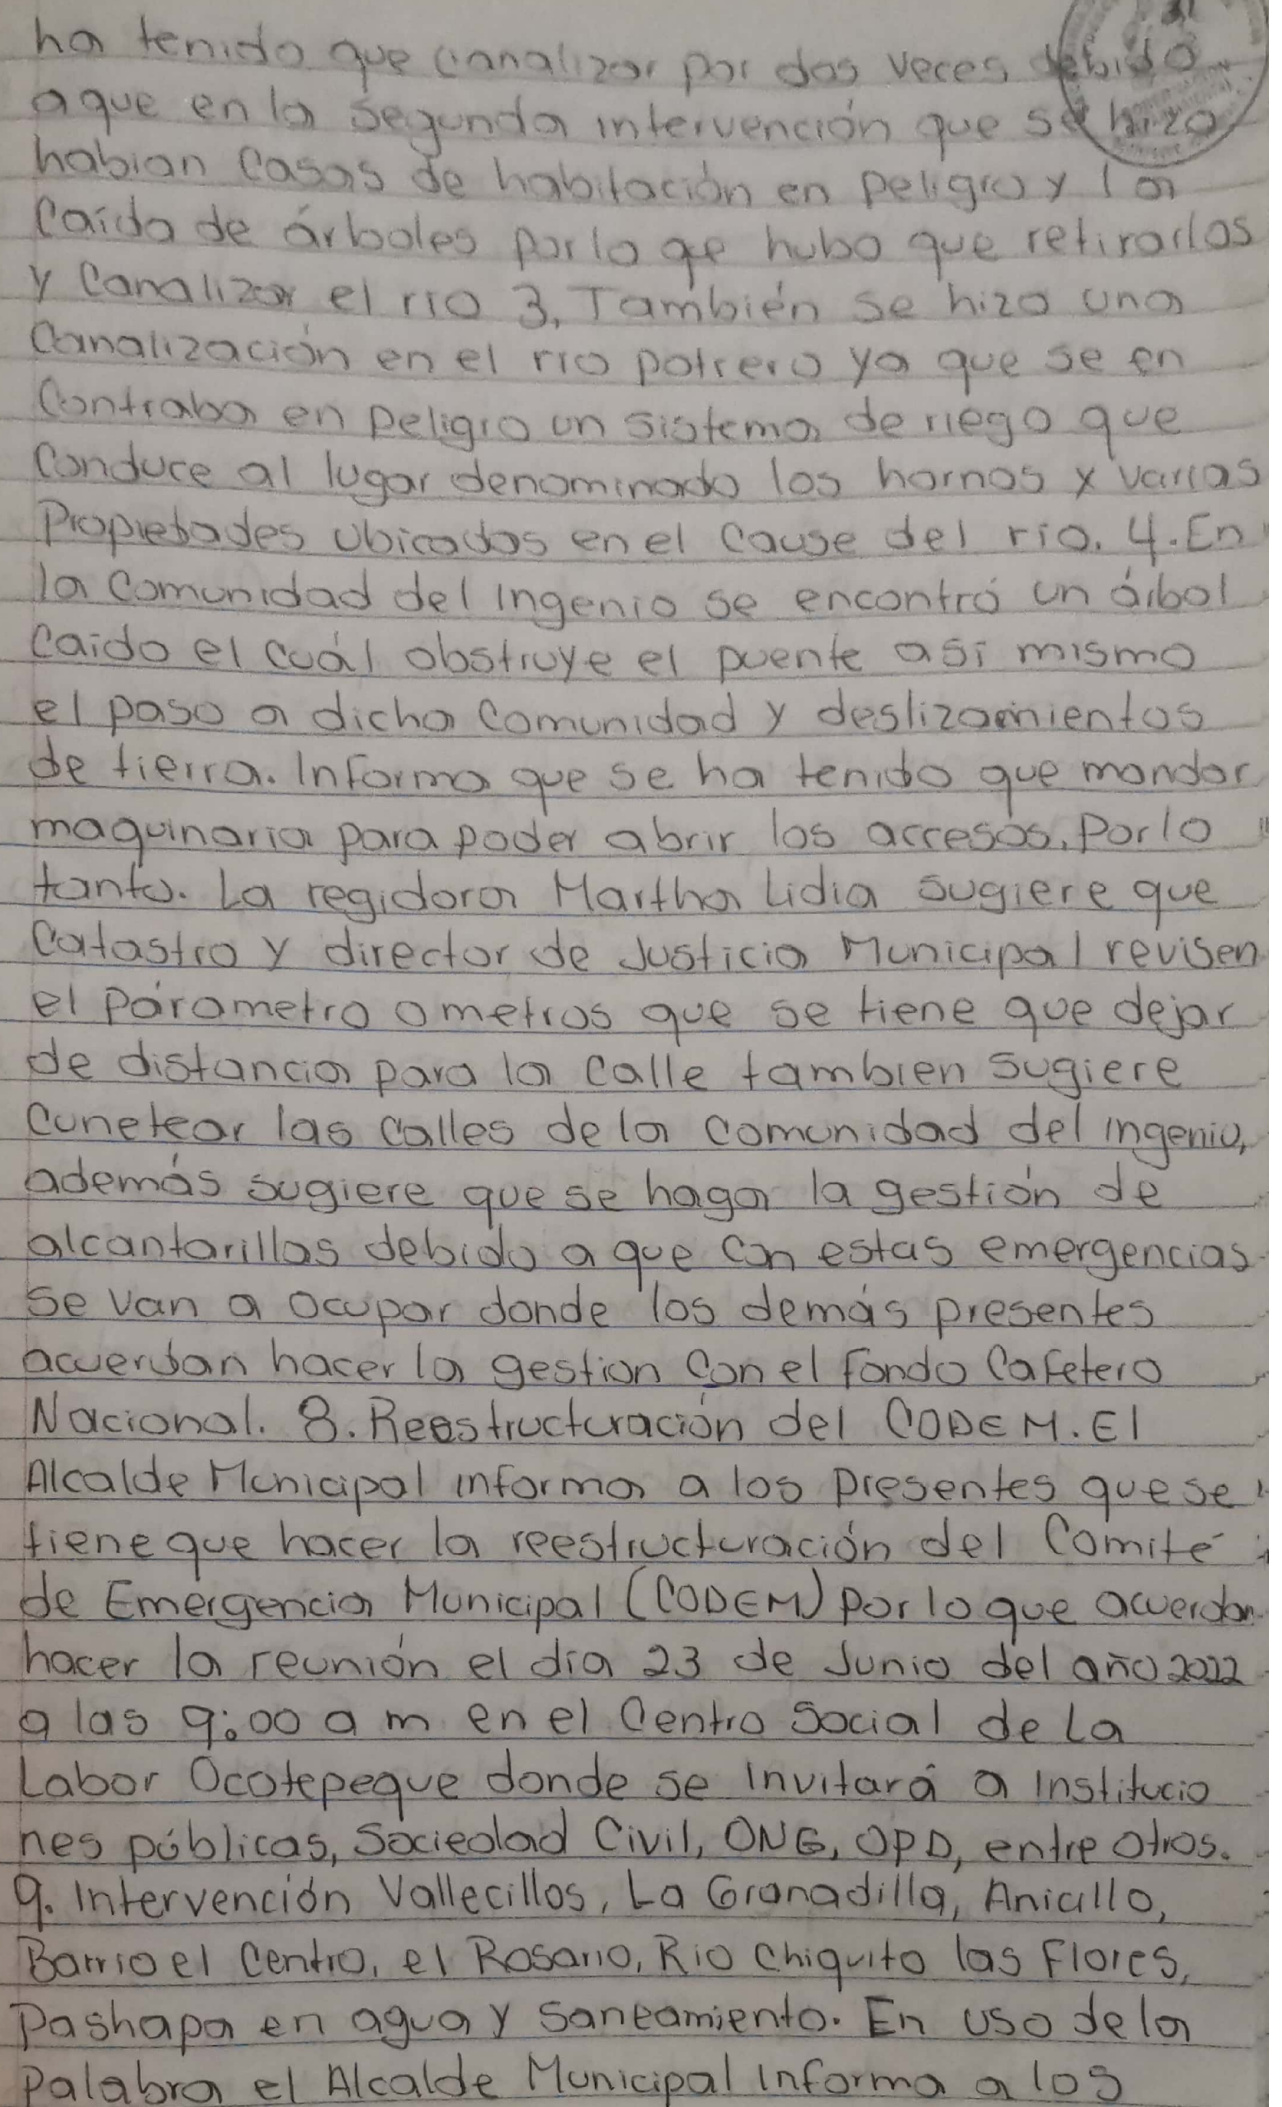 ha tenido que canalizar por dos veces debido
a que en la segunda intervención que se hizo
habian casas de habitación en peligro y la
caída de árboles por lo qe hubo que retirarlos
y canalizar el rio 3, También se hizo una
canalización en el rio potrero ya que se en
contraba en peligro un sistema de riego que
conduce al lugar denominado los hornos y varias
Propiedades ubicados en el cause del rio. 4. En
la comunidad del Ingenio se encontró un árbol
caido el cuál obstruye el puente asi mismo
el paso a dicha comunidad y deslizamientos
de tierra. Informa que se ha tenido que mandar
maquinaria para poder abrir los accesos. Por lo
tanto. La regidora Martha Lidia sugiere que
Catastro y director de Justicia Municipal revisen
el párametro o metros que se tiene que dejar
de distancia para la calle tambien sugiere
cunetear las calles de la comunidad del ingenio,
además sugiere que se haga la gestión de
alcantarillas debido a que con estas emergencias
se van a ocupar donde los demás presentes
acuerdan hacer la gestion con el fondo Cafetero
Nacional. 8. Reestructuración del CODEM. El
Alcalde Municipal informa a los presentes que se
tiene que hacer la reestructuración del Comité
de Emergencia Municipal (CODEM) por lo que acuerdan
hacer la reunión el día 23 de Junio del año 2022
a las 9:00 a m en el Centro Social de La
Labor Ocotepeque donde se invitará a Institucio
nes públicas, Sociedad Civil, ONG, OPD, entre otros.
9. Intervención Vallecillos, La Granadilla, Anicillo,
Barrio el Centro, el Rosario, Rio Chiquito las Flores,
Pashapa en agua y saneamiento. En uso de la
Palabra el Alcalde Municipal Informa a los